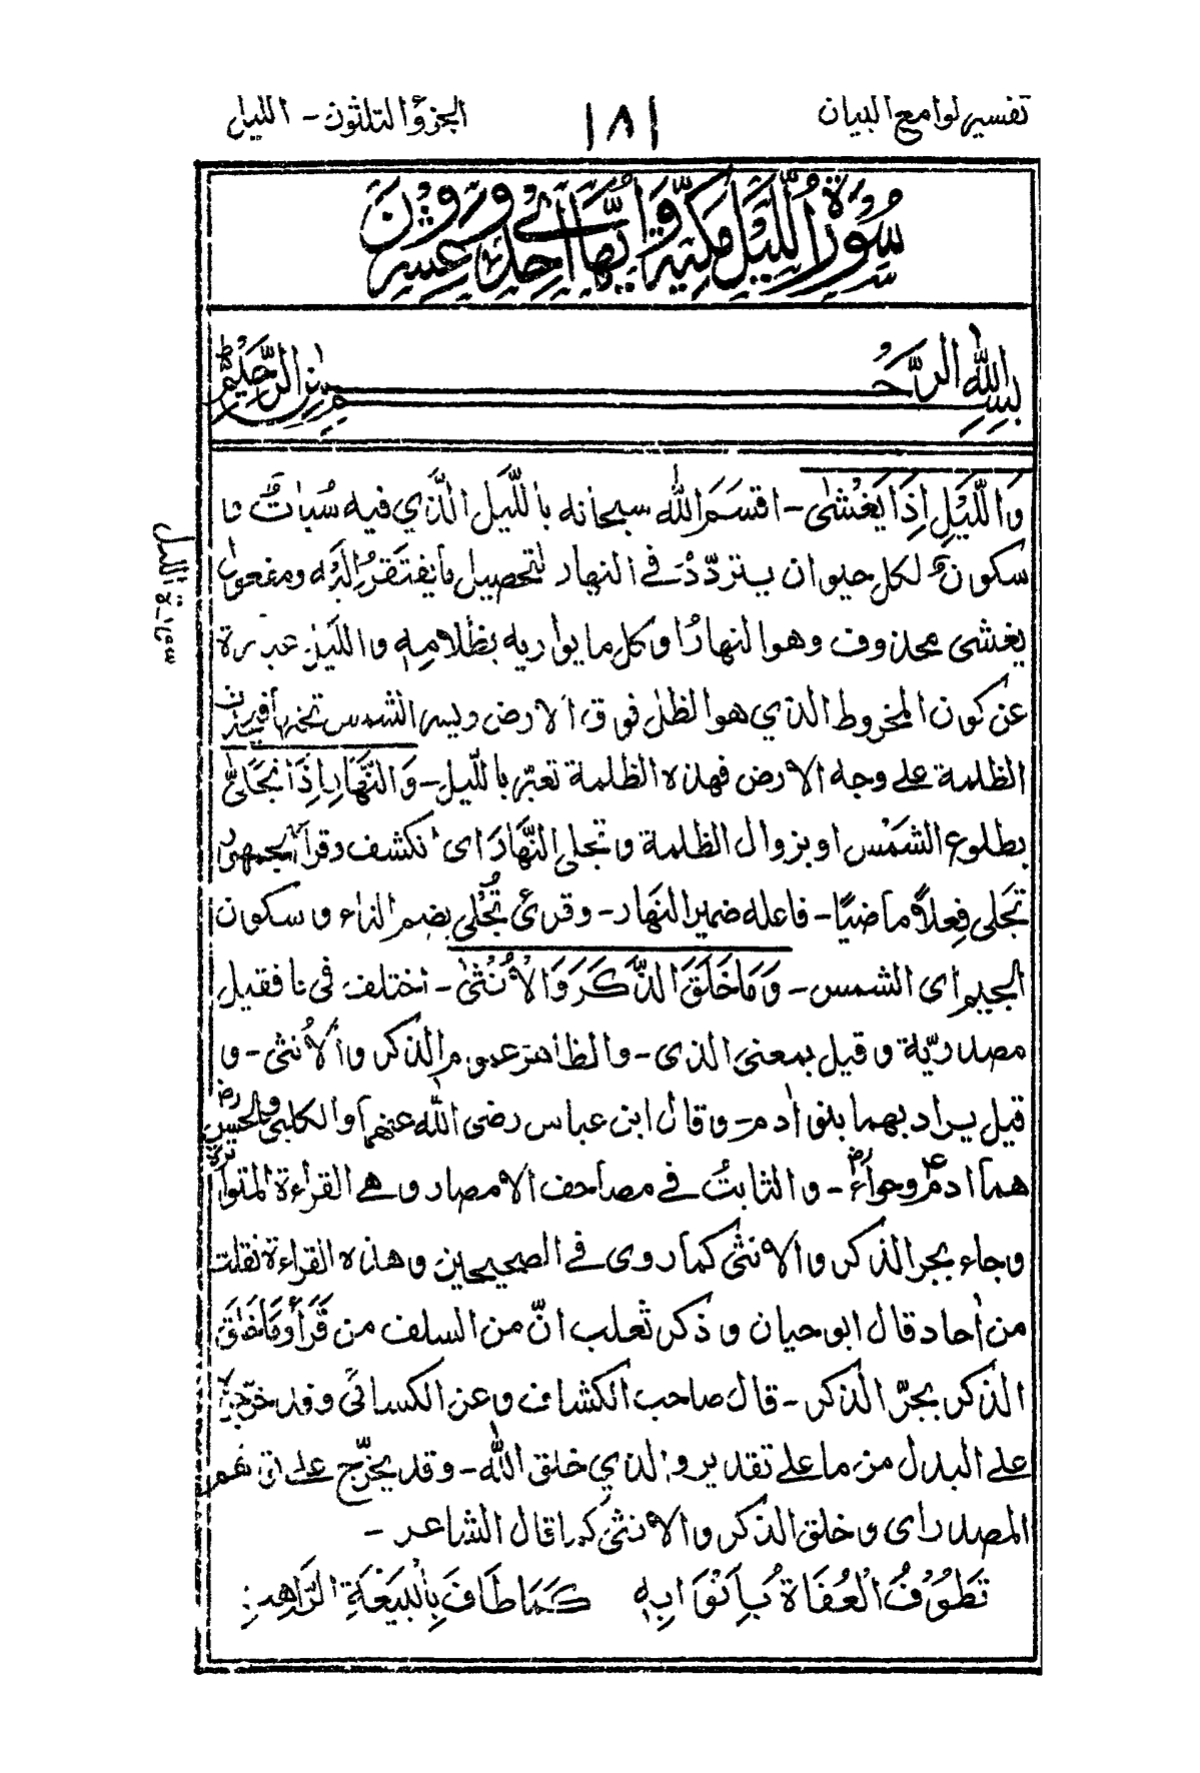 تفسير لوامع البيان
١٨١
الجزؤ الثلثون - الليل
سُوْرَةُ اللَّيْلِ مَكِّيَّةٌ وَّاٰيُهَا اَحِدٌ وَّعِشْرُوْنَ
بِسْمِ اللهِ الرَّحْمٰنِ الرَّحِيْمِ
وَاللَّيْلِ اِذَا يَغْشٰى - اقسَمَ الله سبحانه باللَّيل الَّذي فيه سُباتٌ و
سكونٌ لكل حيوان يتردّدُ في النهار لتحصيل ما يفتقرُ اليه ومفعول
يغشى محذوف وهو النهارُ او كل ما يواريه بظلامِهٖ والليل عبارة
عن كون المخروط الذي هو الظل فوق الارض وليس الشمس تحتها
الظلمة على وجه الارض فهذه الظلمة تعبّر بالليل - وَالنَّهَارِ اِذَا تَجَلّٰى
بطلوع الشمْس او بزوال الظلمة وتجلى النَّهَارَ اى انكشف وقرأ الجمهور
تجَلى فِعلاً ماضيًا - فاعله ضمير النهار - وقرئ تُجْلى بضم التاء وسكون
الجيم اى الشمس - وَمَا خَلَقَ الذَّكَرَ وَالْاُنْثٰى - اختلف فى ما فقيل
مصدريّة وقيل بمعنى الذى - والظاهر عموم الذكر والاُنثى - و
قيل يراد بهما بنو اٰدم - وقال ابن عباس رضى الله عنهما والكلبى والحسن رض
هما اٰدم ع وحواء رض - والثابتُ في مصاحف الامصار وهي القراءة المتواترة
وجاء بجر الذكر والانثى كما روى في الصحيحين وهذه القراءة نقلت
من اٰحاد قال ابو حيان وذكر ثعلب انّ من السلف من قَرَأَ وَمَا خَلَقَ
الذكر بجرّ الذكر - قال صاحب الكشاف وعن الكسائى وقد خرّجوا
على البدل من ما على تقدير والذي خلق الله - وقد يخرّج على توهم
المصدر اى وخلق الذكر والانثى كما قال الشاعر -
تَطُوْفُ الْعُفَاةُ بِاَبْوَابِهٖ كَمَا طَافَ بِالْبَيْعَةِ الرَّاهِبِ
سورة الليل